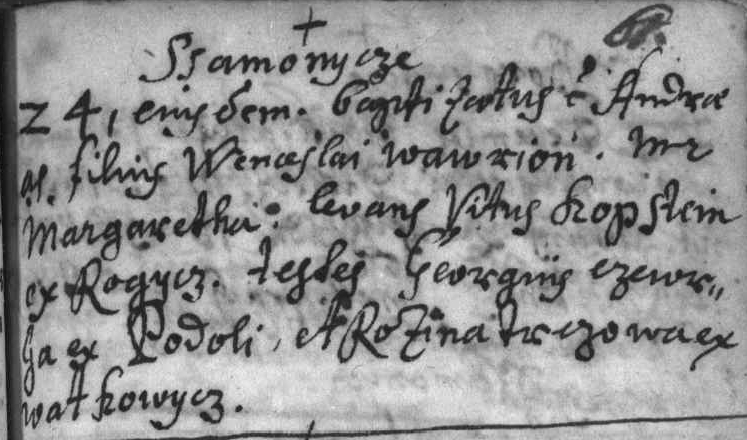 Ssamonycze
24, eiusdem. baptizatus ē Andræ
as. filius Wenceslai wawrion. Mr
Margaretha: levans Vitus Kopstein
ex Rogycz. testes Georgius czewr„
ha ex Podoli, et Rozina Trczowa ex
watkowycz.